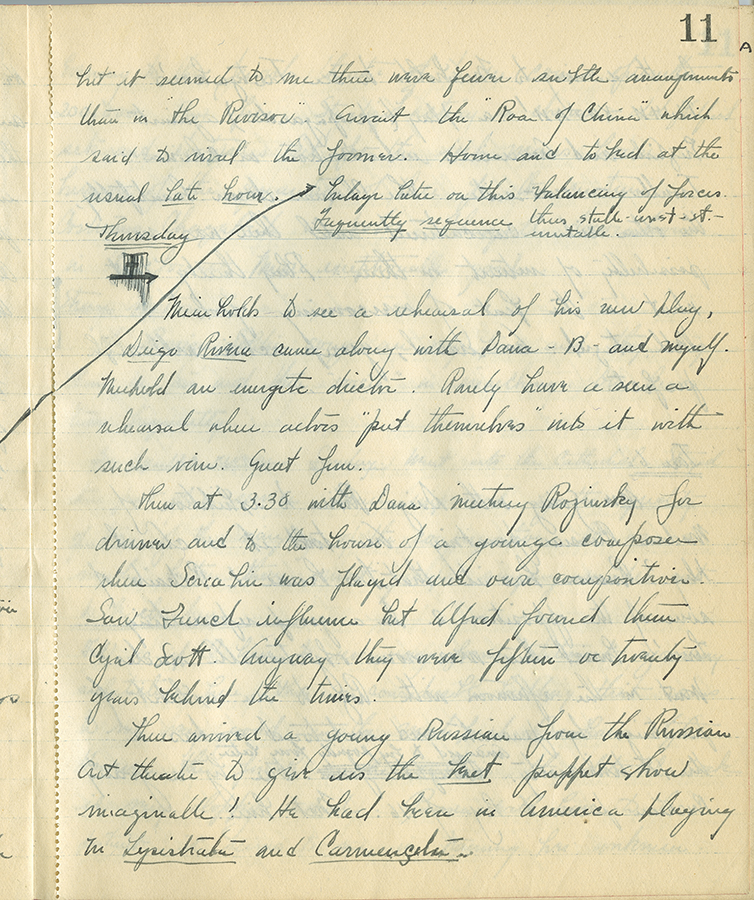 11
A
but it seemed to me there were fewer subtle arrangements
than in "the Revisor". Await the "Roar of China" which
said to rival the former. Home and to bed at the
usual late hour. Enlarge later on this balancing of forces.
Frequently sequence thus stable-unst-st.-
unstable.
Thursday
Meierholds to see a rehearsal of his new play,
Diego Rivera came along with Dana - B - and myself.
Meehold an energetic director. Rarely have a seen a
rehearsal where actors "put themselves" into it with
such vim. Great fun.
Then at 3.30 with Dana meeting Rozinsky for
dinner and to the house of a younge composer
where Scriabin was played and own composition.
Saw French influence but Alfred found them
Cyril Scott. Anyway they were fifteen or twenty
years behind the times.
There arrived a young Russian from the Russian
Art theatre to give us the best puppet show
imaginable! He had been in America playing
in Lysistrata and Carmencita.